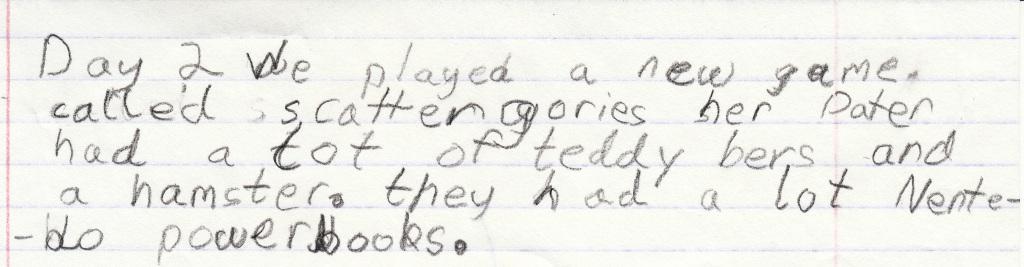 Day 2 We played a new game.
called scattergories her Dater
had a lot of teddy bers and
a hamster. they had a lot Nente-
-do powerbooks.